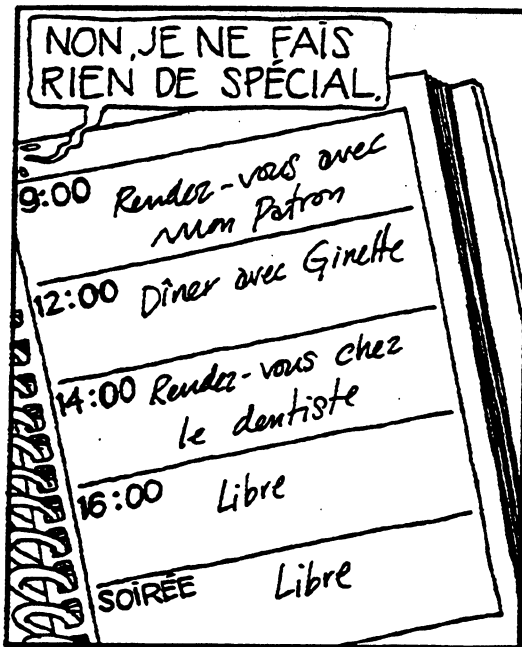 NON, JE NE FAIS
RIEN DE SPÉCIAL.
9:00 Rendez-vous avec
mon Patron
12:00 Dîner avec Ginette
14:00 Rendez-vous chez
le dentiste
16:00 Libre
SOIRÉE Libre